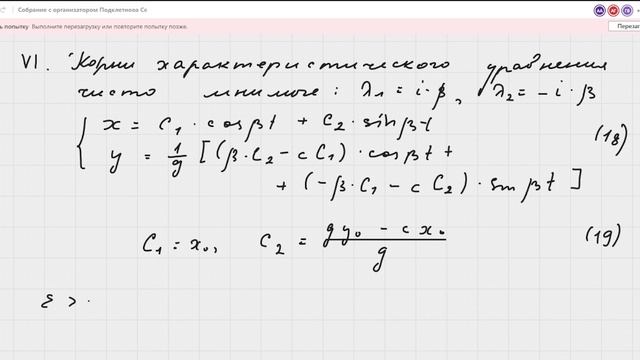 Собрание с организатором Подклетнова Се
АА АГ ТВ
ь попытку Выполните перезагрузку или повторите попытку позже.
Перезаг
VI. Корни характеристического уравнения
чисто мнимые: λ₁ = i·β, λ₂ = -i·β
x = C₁·cosβt + C₂·sinβt
y = 1/g [(β·C₂ - cC₁)·cosβt +
+ (-β·C₁ - cC₂)·sinβt]
(18)
C₁ = x₀, C₂ = (gy₀ - cx₀)/g (19)
ε > ·